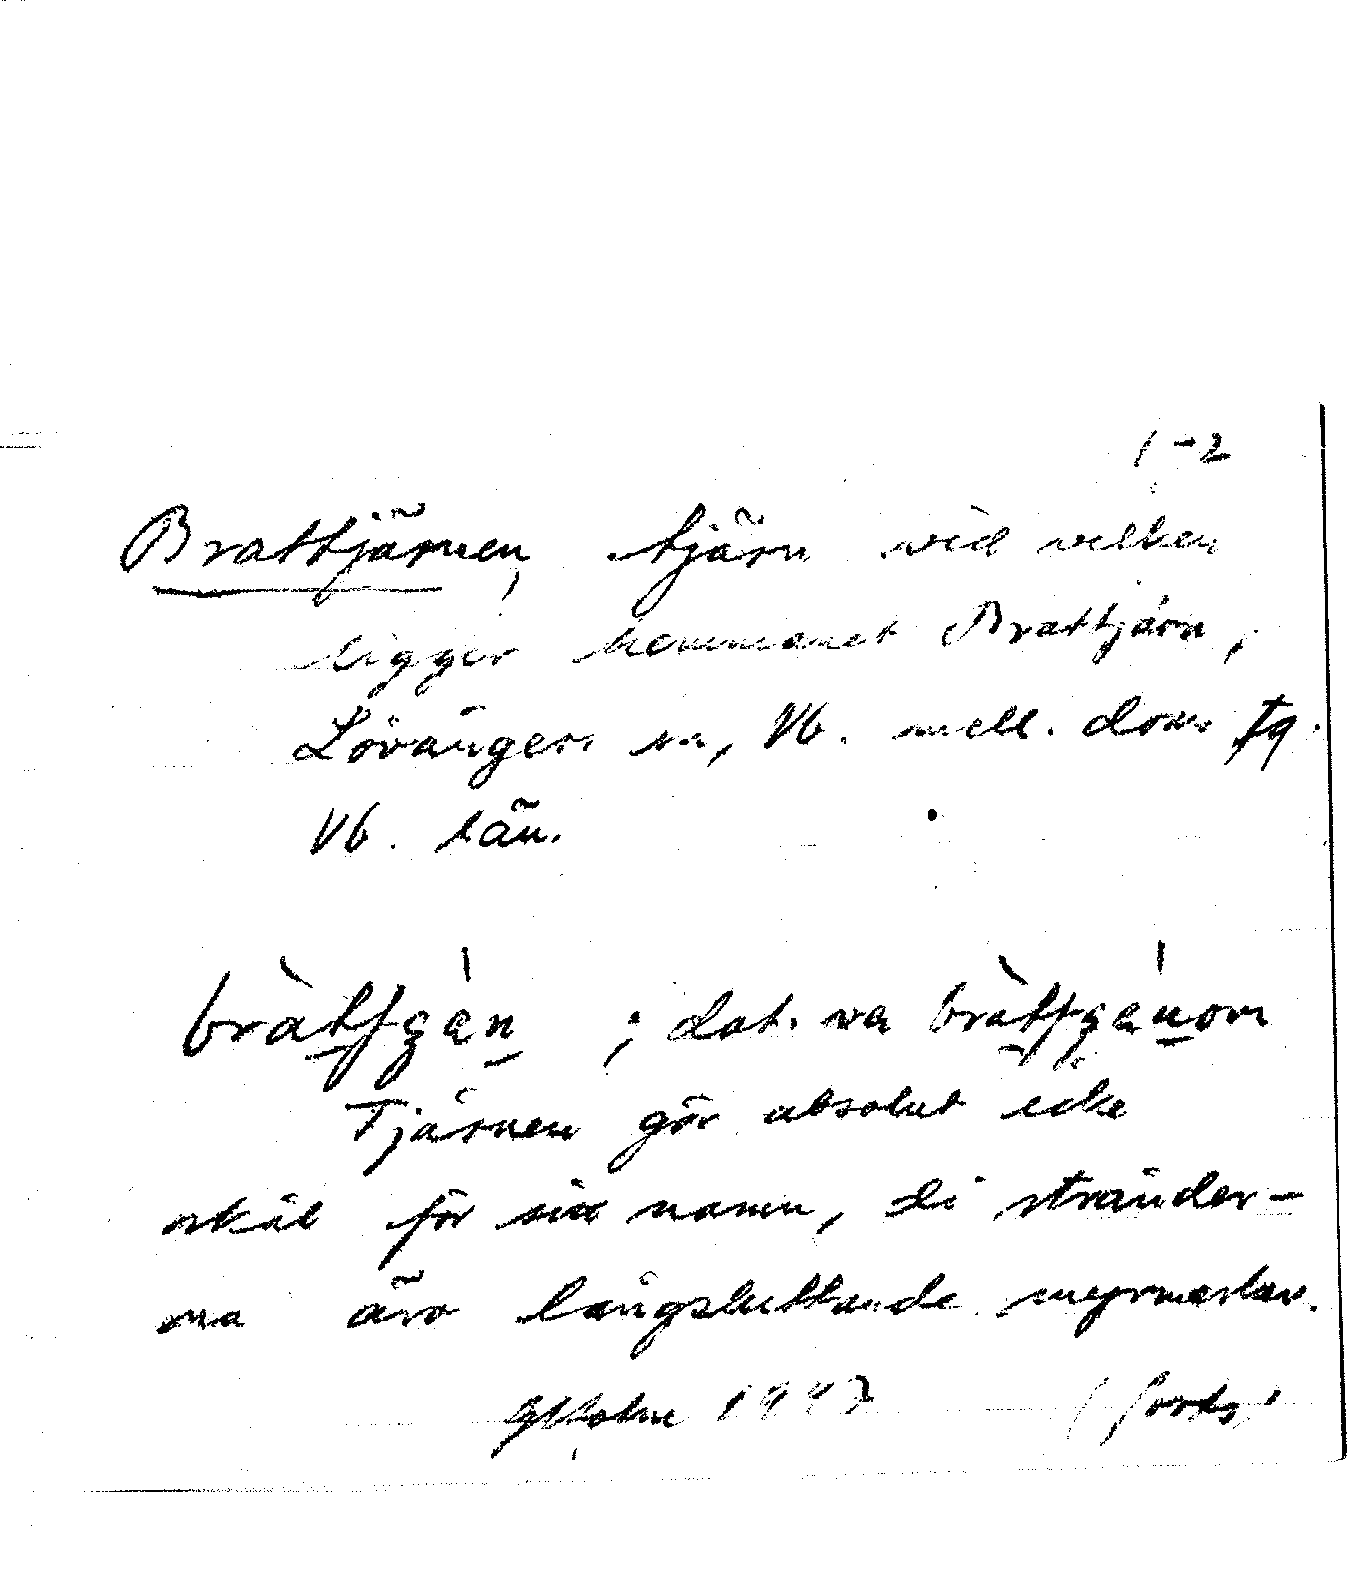 1-2
Brattjärnen, tjärn vid vilken
ligger hemmanet Brattjärn,
Lövångers sn, Vb. mell. doms tg
Vb. län.
bràttjǝ̀n ; dat. va
Tjärnen gör absolut icke
skäl för sitt namn, di stränder-
na äro långsluttande myrmarker.
GHolm 1947 (forts)